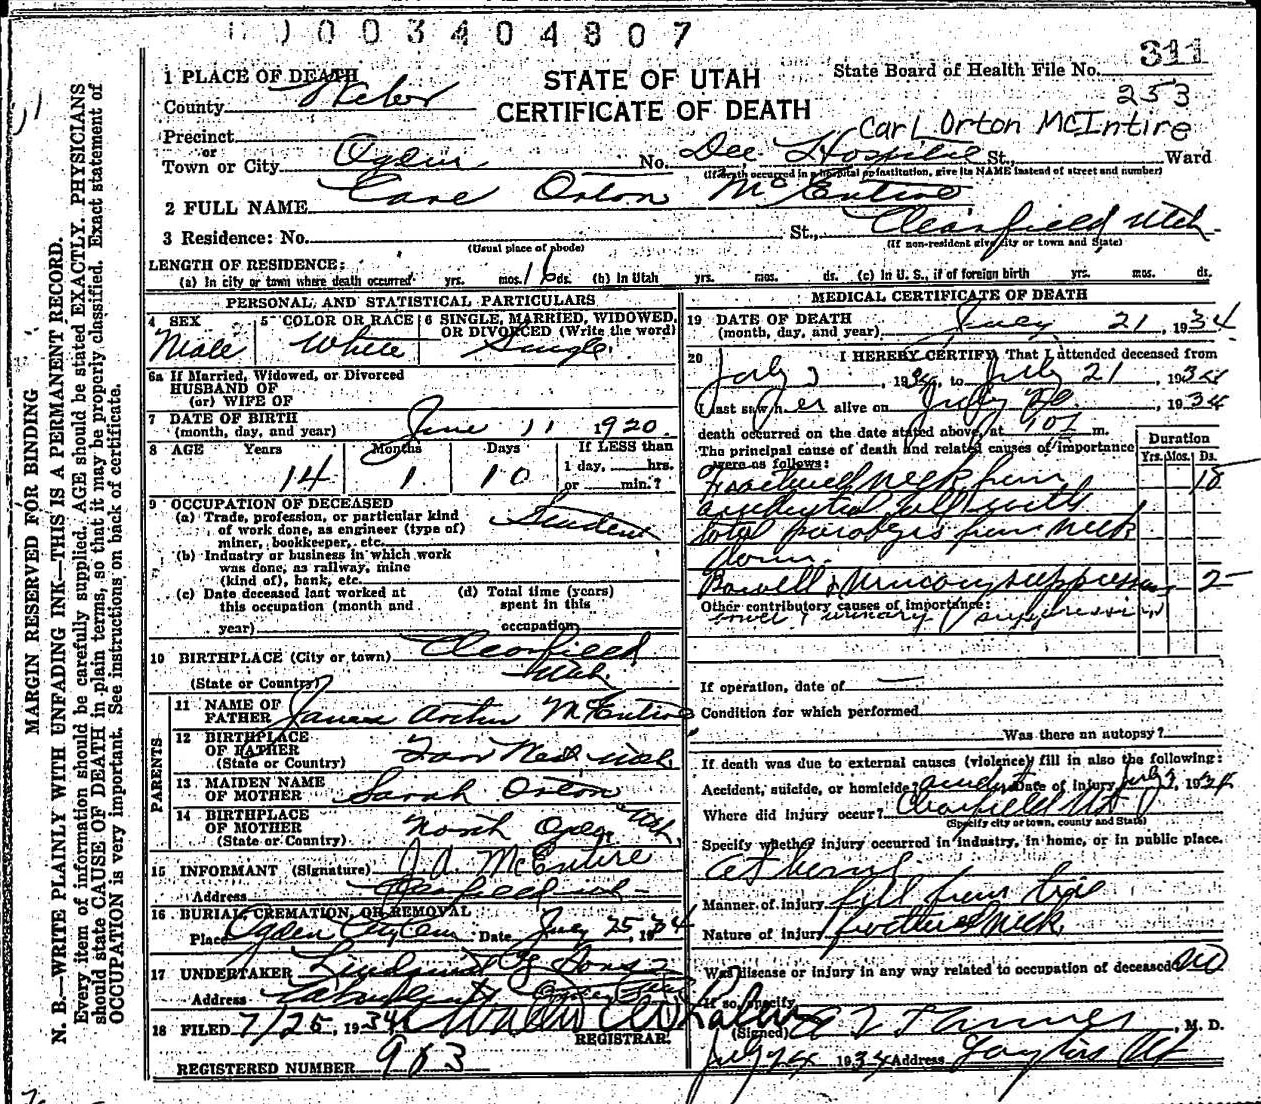 0 0 3 4 0 4 8 0 7
1 PLACE OF DEATH
STATE OF UTAH
CERTIFICATE OF DEATH
State Board of Health File No. 311
253
County Weber
Carl Orton McIntire
Precinct
or
Town or City Ogden No. Dee Hospital St., Ward
(If death occurred in a hospital or institution, give its NAME instead of street and number)
2 FULL NAME Carl Orton McEntire
3 Residence: No. St., Clearfield Utah
(Usual place of abode) (If non-resident give city or town and State)
LENGTH OF RESIDENCE:
(a) In city or town where death occurred yrs. mos. 16 ds. (b) In Utah yrs. mos. ds. (c) In U. S., if of foreign birth yrs. mos. ds.
PERSONAL AND STATISTICAL PARTICULARS
4 SEX Male
5 COLOR OR RACE White
6 SINGLE, MARRIED, WIDOWED, OR DIVORCED (Write the word) Single
6a If Married, Widowed, or Divorced
HUSBAND OF
(or) WIFE OF
7 DATE OF BIRTH
(month, day, and year) June 11 1920
8 AGE Years Months Days If LESS than
14 1 10 1 day, hrs.
or min.?
9 OCCUPATION OF DECEASED
(a) Trade, profession, or particular kind
of work done, as engineer (type of)
miner, bookkeeper, etc. Student
(b) Industry or business in which work
was done, as railway, mine
(kind of), bank, etc.
(c) Date deceased last worked at
this occupation (month and
year)
(d) Total time (years)
spent in this
occupation
10 BIRTHPLACE (City or town) Clearfield
(State or Country) Utah
PARENTS
11 NAME OF
FATHER James Archie McEntire
12 BIRTHPLACE
OF FATHER
(State or Country) Utah
13 MAIDEN NAME
OF MOTHER Sarah Orton
14 BIRTHPLACE
OF MOTHER
(State or Country) North Ogden Utah
15 INFORMANT (Signature) J. A. McEntire
Address Clearfield Utah
16 BURIAL, CREMATION, OR REMOVAL
Place Ogden City Cem Date July 25, 1934
17 UNDERTAKER Lindquist & Sons
Address
18 FILED 7/25, 1934
REGISTRAR.
REGISTERED NUMBER 963
MEDICAL CERTIFICATE OF DEATH
19 DATE OF DEATH
(month, day, and year) July 21, 1934
20 I HEREBY CERTIFY, That I attended deceased from
July 3, 1934, to July 21, 1934
I last saw her alive on July 20, 1934
death occurred on the date stated above, at m.
The principal cause of death and related causes of importance
were as follows:
Duration
Yrs. Mos. Ds.
Fractured neck from 18
accidental fall with
total paralysis from neck
down
Bowell & Urinary suppression 2
Other contributory causes of importance:
bowel & urinary suppression
If operation, date of
Condition for which performed
Was there an autopsy?
If death was due to external causes (violence) fill in also the following:
Accident, suicide, or homicide? accident Date of injury July 3, 1934
Where did injury occur? Clearfield Ut
(Specify city or town, county and State)
Specify whether injury occurred in industry, in home, or in public place.
at home
Manner of injury fell from tree
Nature of injury fractured neck
Was disease or injury in any way related to occupation of deceased? NO
If so, specify
(Signed) , M. D.
July 24 1934 Address Layton Ut
MARGIN RESERVED FOR BINDING
N. B.—WRITE PLAINLY WITH UNFADING INK—THIS IS A PERMANENT RECORD.
Every item of information should be carefully supplied. AGE should be stated EXACTLY. PHYSICIANS
should state CAUSE OF DEATH in plain terms, so that it may be properly classified. Exact statement of
OCCUPATION is very important. See instructions on back of certificate.